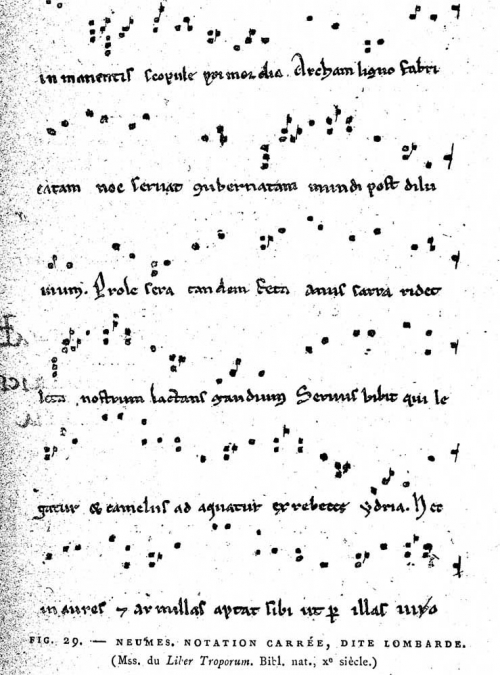 in manentis scopule primordia. Archam ligno fabri
catam noe servat gubernatam mundi post dilu
vium. Prole sera tandem feta anus sarra ridet
leta nostrum lactans gaudium Servus bibit qui le
gatur & camelus ad aquatur ex rebecce ydria. Hec
in aures ⁊ armillas aptat sibi ut p illas
FIG. 29. — NEUMES. NOTATION CARRÉE, DITE LOMBARDE.
(Mss. du Liber Troporum. Bibl. nat., xᵉ siècle.)